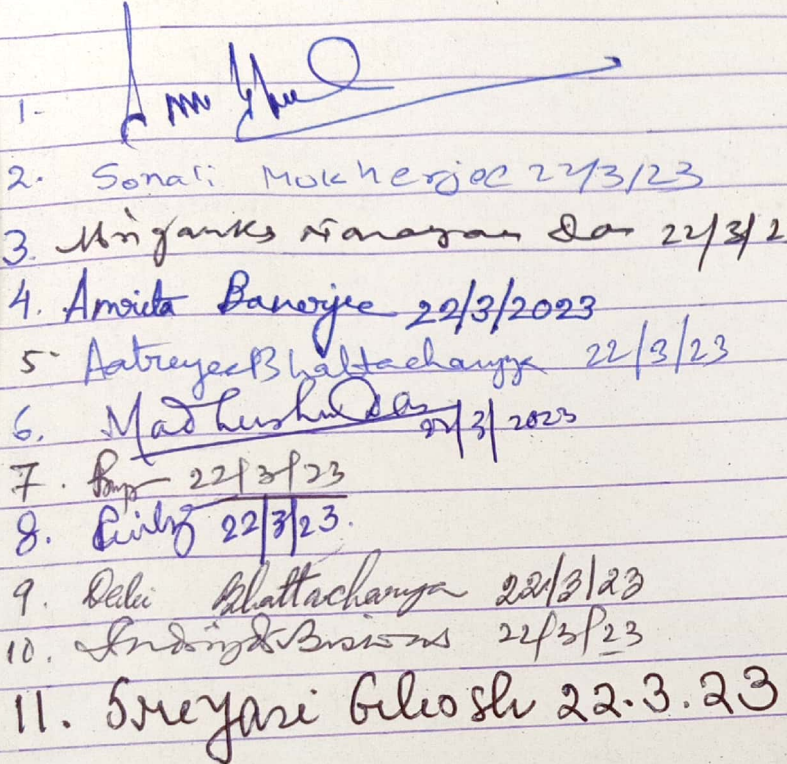 1-
2. Sonali Mukherjee 22/3/23
3. Mriganka Narayan Das 22/3/2
4. Amrita Banerjee 22/3/2023
5 Aatreyee Bhattacharyya 22/3/23
6. Madhushri Das 22/3/2023
7. 22/3/23
8. 22/3/23.
9. Debi Bhattacharya 22/3/23
10. Biswas 22/3/23
11. Sreyasi Ghosh 22.3.23